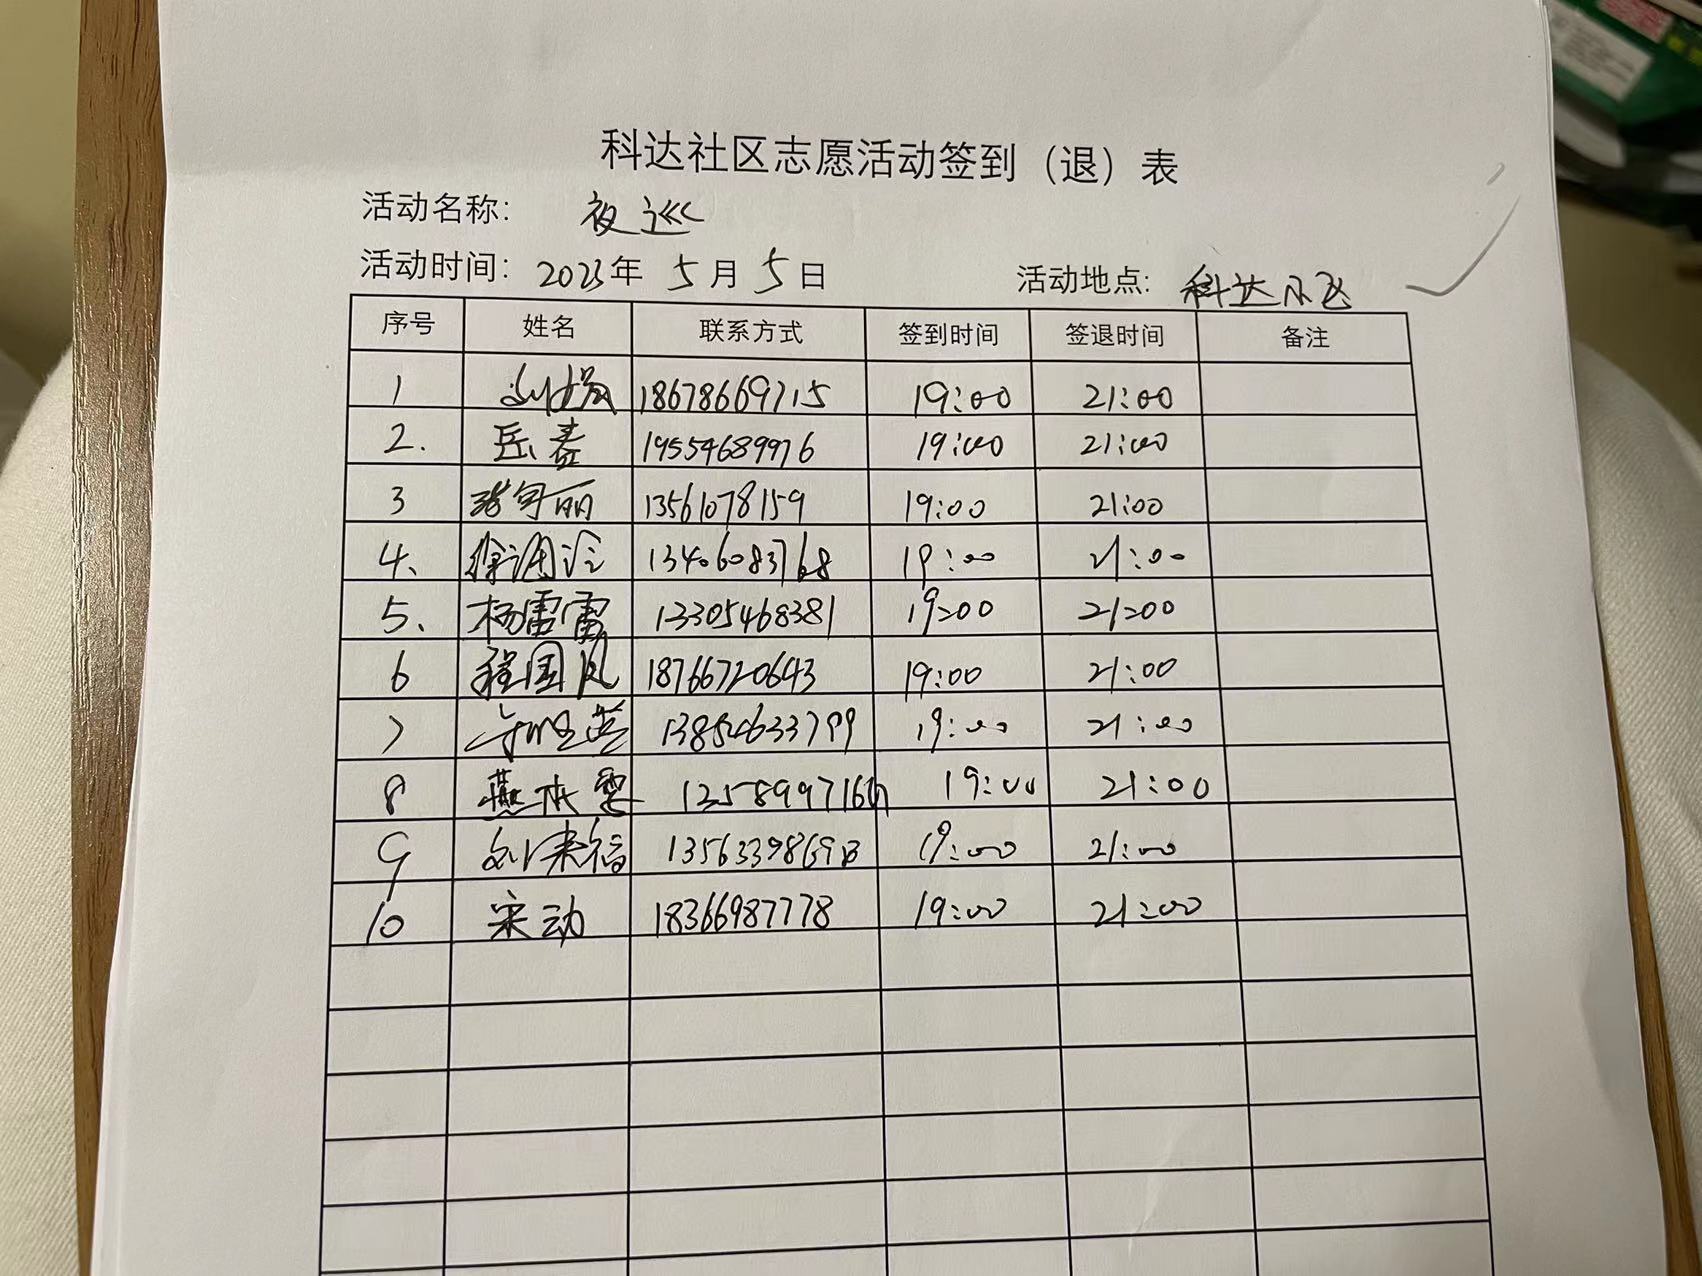 科达社区志愿活动签到（退）表
活动名称： 夜巡
活动时间： 2023年 5月 5日 活动地点: 科达小区
序号 姓名 联系方式 签到时间 签退时间 备注
1 刘娟 18678669715 19:00 21:00
2. 岳春 19554689976 19:00 21:00
3 张守丽 13561078159 19:00 21:00
4、 13406083768 19:00 21:00
5、 杨雷雷 13305468381 19:00 21:00
6 程国凤 18766720643 19:00 21:00
7 13854633799 19:00 21:00
8 燕 19:00 21:00
9 刘来福 19:00 21:00
10 宋动 18366987778 19:00 21:00